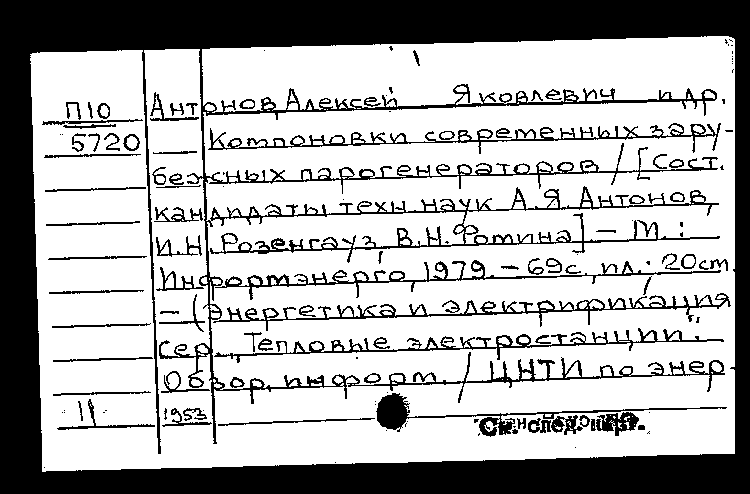 П10 Антонов, Алексей Яковлевич и др.
5720 Компоновки современных зару-
бежных парогенераторов / [Сост.
кандидаты техн. наук А.Я. Антонов,
И.Н. Розенгауз, В.Н. Фомина] – М.:
Информэнерго, 1979. – 69с., ил.; 20см.
– (Энергетика и электрификация
сер. „Тепловые электростанции".
Обзор. информ. / ЦНТИ по энер-
11 1953 См. след. карт.